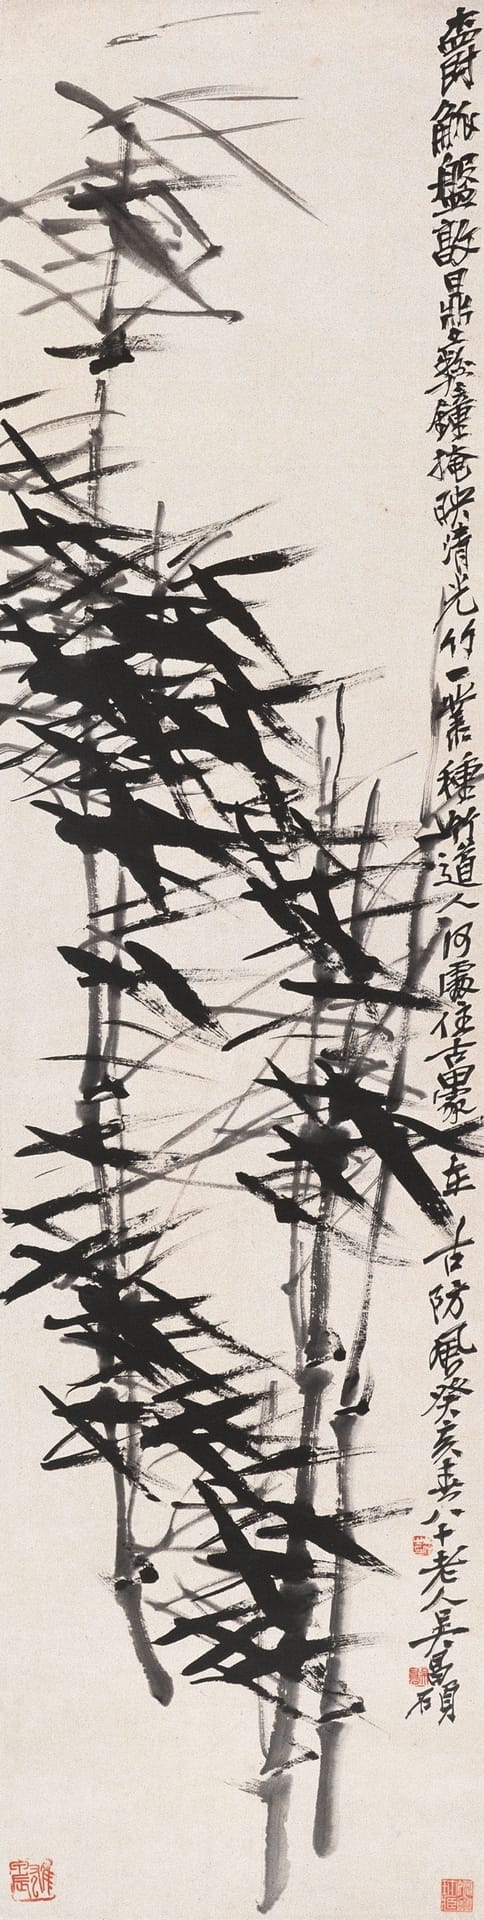 爵觚盤敦鼎彝鐘掩映清光竹一叢種竹道人何處住古在古防風癸亥春八十老人吳昌碩
雄甲辰